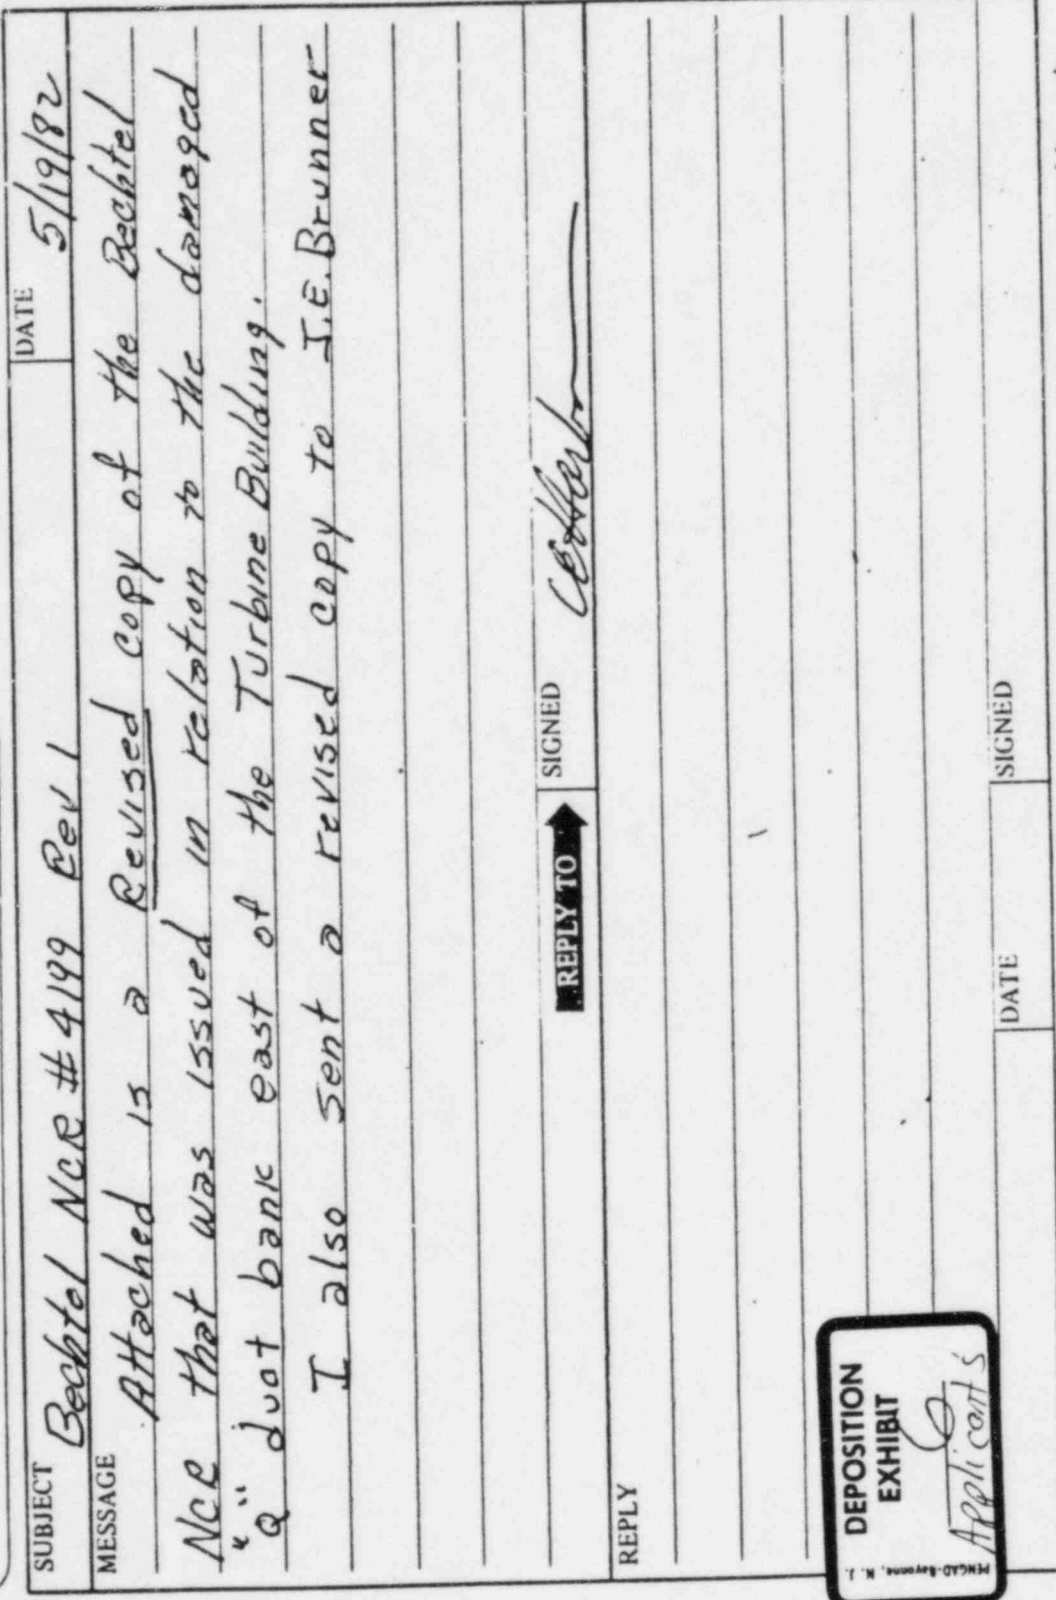 SUBJECT Bechtel NCR # 4199 Rev 1 DATE 5/19/82
MESSAGE
Attached is a Revised copy of the Bechtel
NCR that was issued in relation to the damaged
"Q" duct bank east of the Turbine Building.
I also sent a revised copy to J.E. Brunner
REPLY TO SIGNED
REPLY
DATE SIGNED
DEPOSITION
EXHIBIT
6
Applicants
PENGAD-Bayonne, N. J.